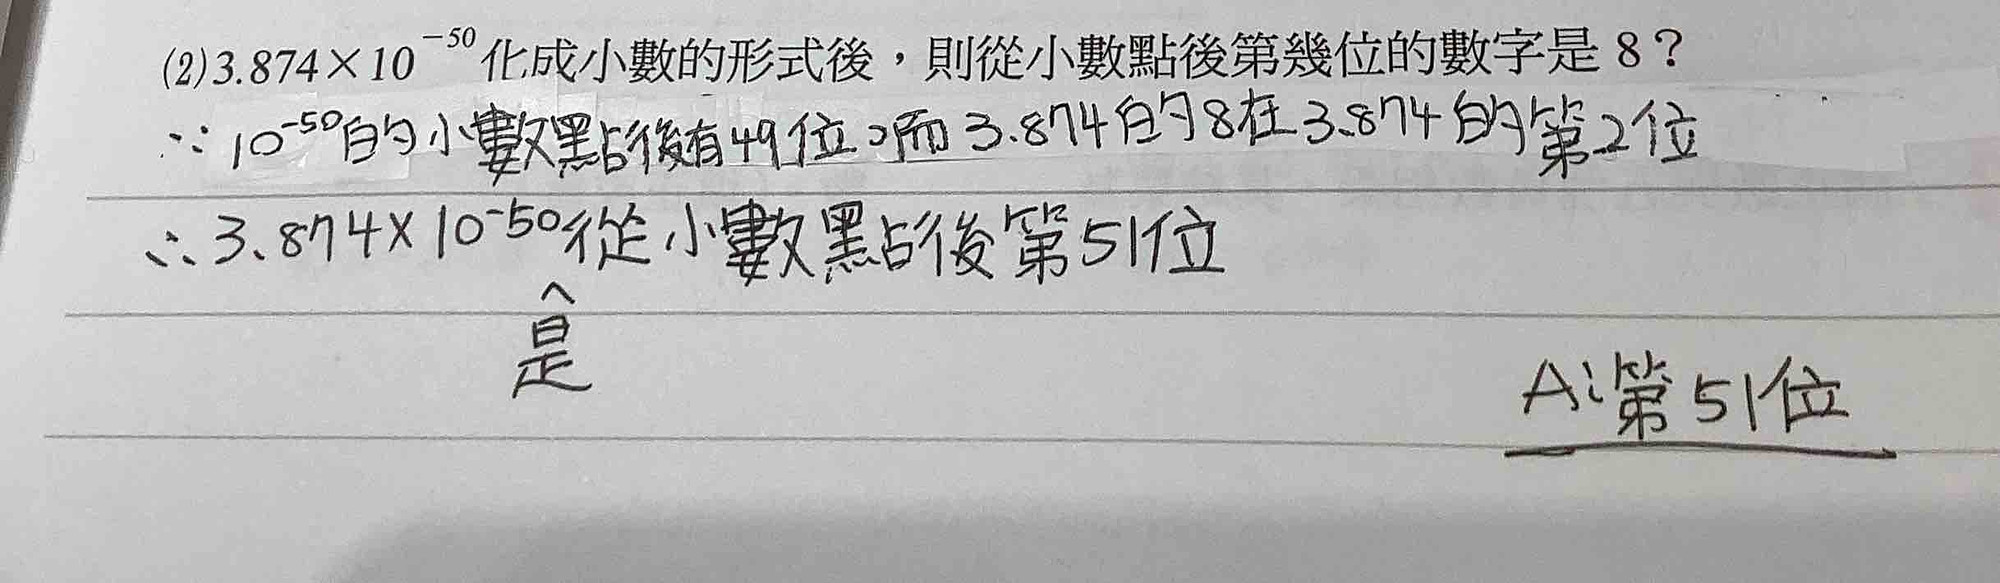 (2)3.874×10⁻⁵⁰化成小數的形式後，則從小數點後第幾位的數字是 8？
∵10⁻⁵⁰的小數點後有49位，而3.874的8在3.874的第2位
∴3.874×10⁻⁵⁰從小數點後第51位
^
是
A:第51位